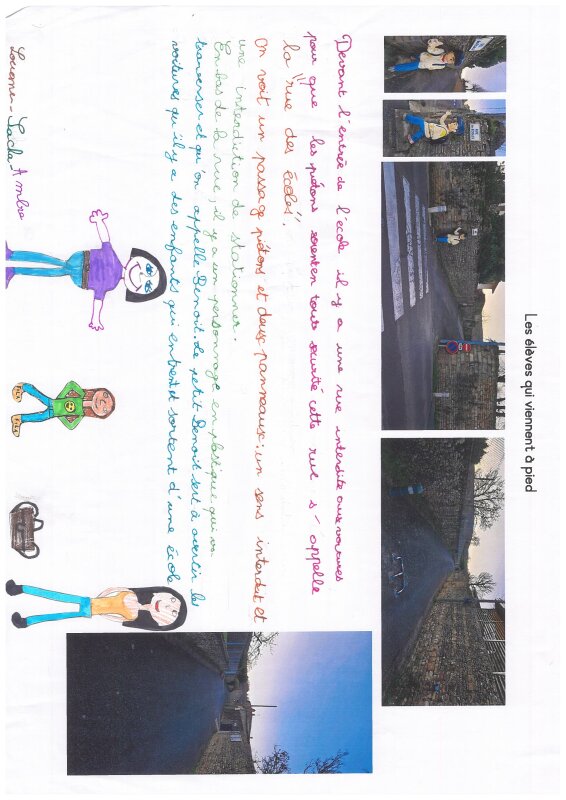 Les élèves qui viennent à pied
Devant l'entrée de l'école il y a une rue interdite aux voitures
pour que les piétons soient en toute sécurité cette rue s'appelle
la "rue des écoles".
On voit un passage piétons et deux panneaux: un sens interdit et
une interdiction de stationner.
En bas de la rue, il y a un personnage en plastique qui va
traverser et qu'on appelle Benoit. Le petit Benoit sert à avertir les
voitures qu'il y a des enfants qui entrent et sortent d'une école
Sacha Ambre